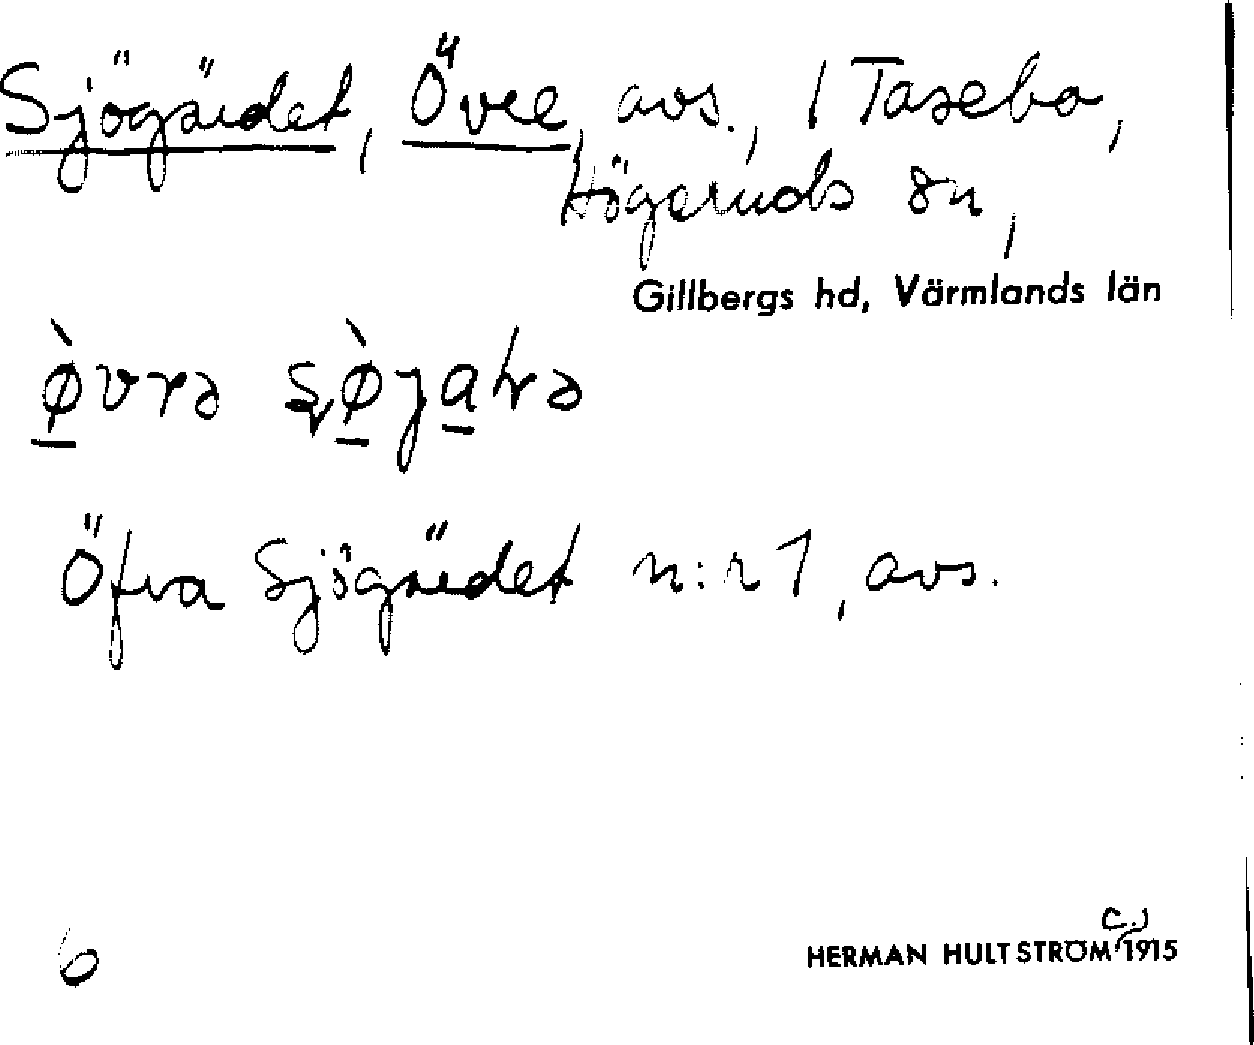 Sjögärdet, Övre, avs., / Tasebo,
Högeruds sn,
Gillbergs hd, Värmlands län
Öfra Sjögärdet n:r 1, avs.
6
C.)
HERMAN HULTSTRÖM 1915